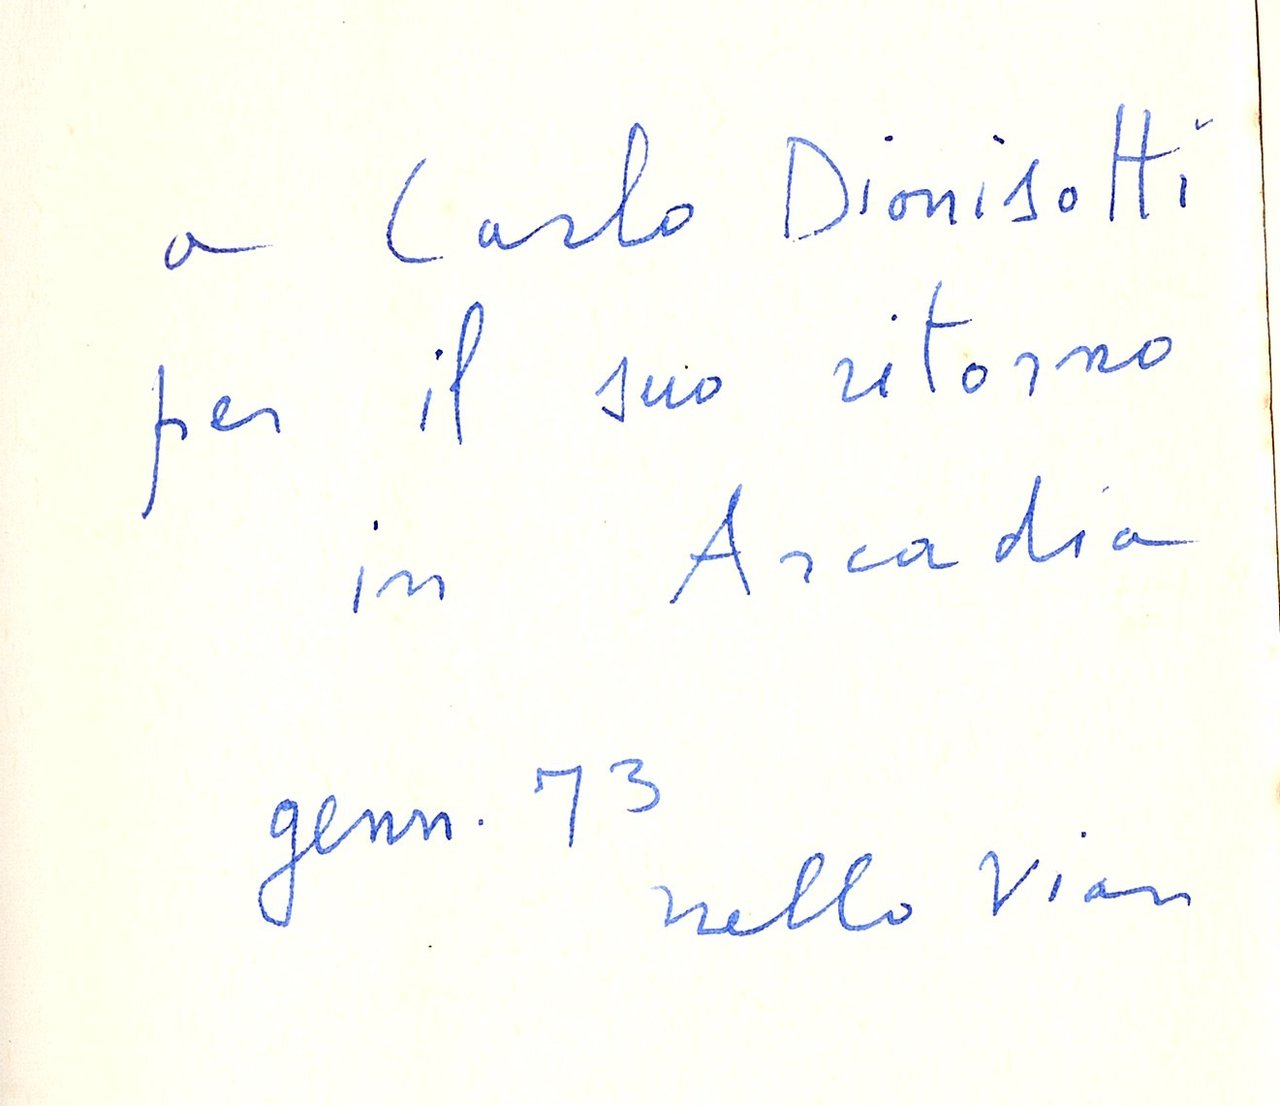 a Carlo Dionisotti
per il suo ritorno
in Arcadia
genn. 73
nello Vian